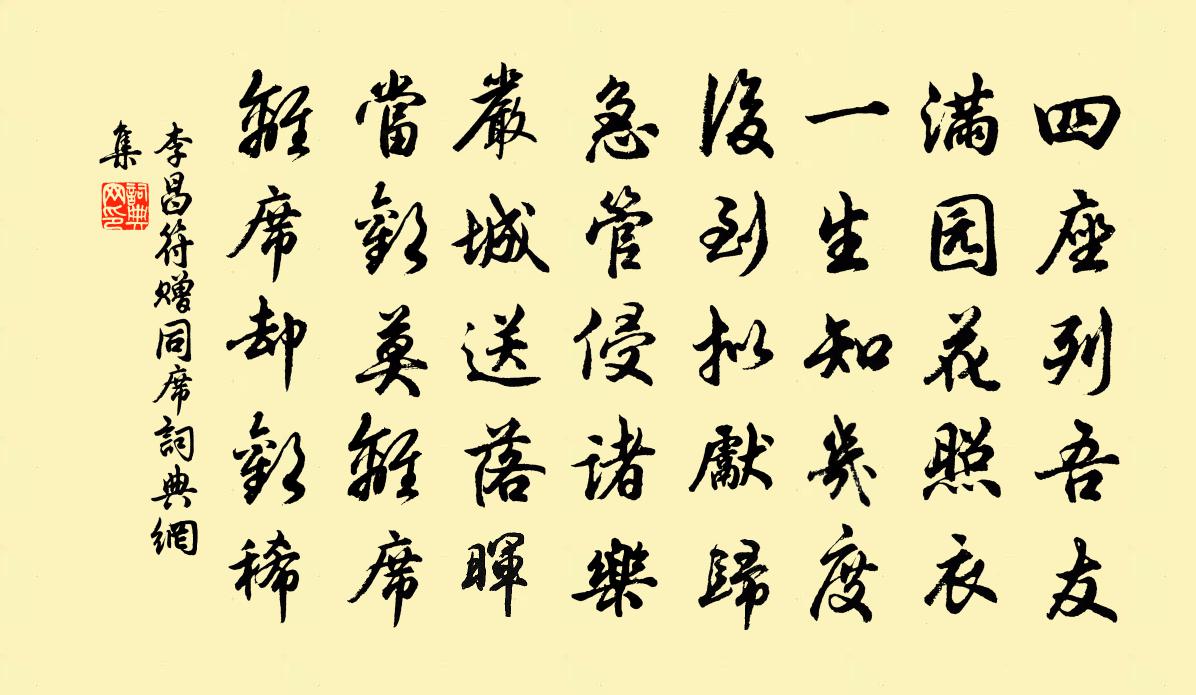 四座列吾友
满园花照衣
一生知幾度
後到拟獻歸
急管侵諸樂
嚴城送落暉
當歡莫離席
離席却歡稀
李昌符赠同席詞典網
集
詞典网印